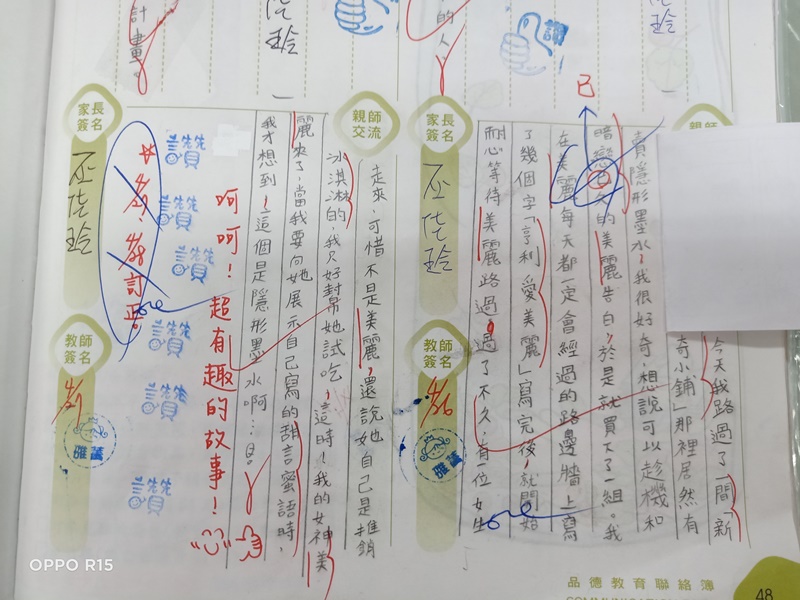 今天我路過了一間「新
奇小鋪」那裡居然有
賣隱形墨水,我很好奇,想說可以趁機和
暗戀的美麗告白,於是就買下了一組。我
在美麗每天都一定會經過的路邊牆上寫
了幾個字「亨利愛美麗」寫完後,就開始
耐心等待美麗路過,過了不久,有一位女生
走來,可惜不是美麗,還說她自己是推銷
冰淇淋的,我只好封幫她試吃,這時!我的女神美
麗來了,當我要向她展示自己寫的甜言蜜語時,
我才想到!這個是隱形墨水啊…
已
呵呵!超有趣的故事!
訂正。
讚
讚
讚
讚
讚
讚
讚
親師
親師
交流
家長
簽名
教師
簽名
家長
簽名
教師
簽名
計畫。
的人
品德教育聯絡簿
48
OPPO R15